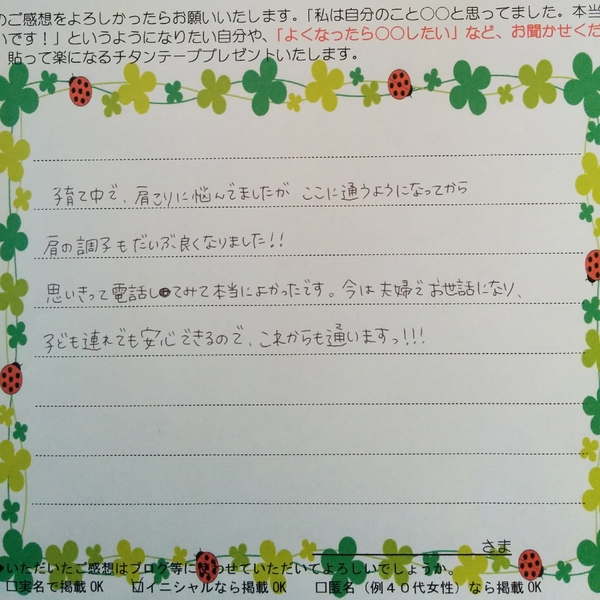 のご感想をよろしかったらお願いいたします。「私は自分のこと〇〇と思ってました。本当
いです！」というようになりたい自分や、「よくなったら〇〇したい」など、お聞かせくだ
貼って楽になるチタンテーププレゼントいたします。
子育て中で、肩こりに悩んでましたが ここに通うようになってから
肩の調子もだいぶ良くなりました!!
思いきって電話してみて本当によかったです。今は夫婦でお世話になり、
子ども連れでも安心できるので、これからも通いますっ!!!
さま
◆いただいたご感想はブログ等に使わせていただいてよろしいでしょうか。
□実名で掲載OK ☑イニシャルなら掲載OK □匿名（例４０代女性）なら掲載OK